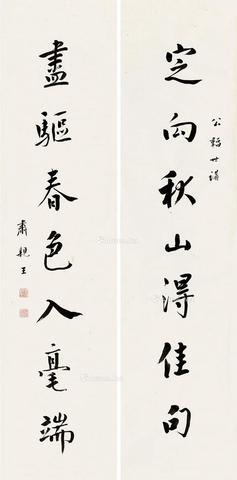 公穆世講
定向秋山得佳句
盡驅春色入毫端
肅親王